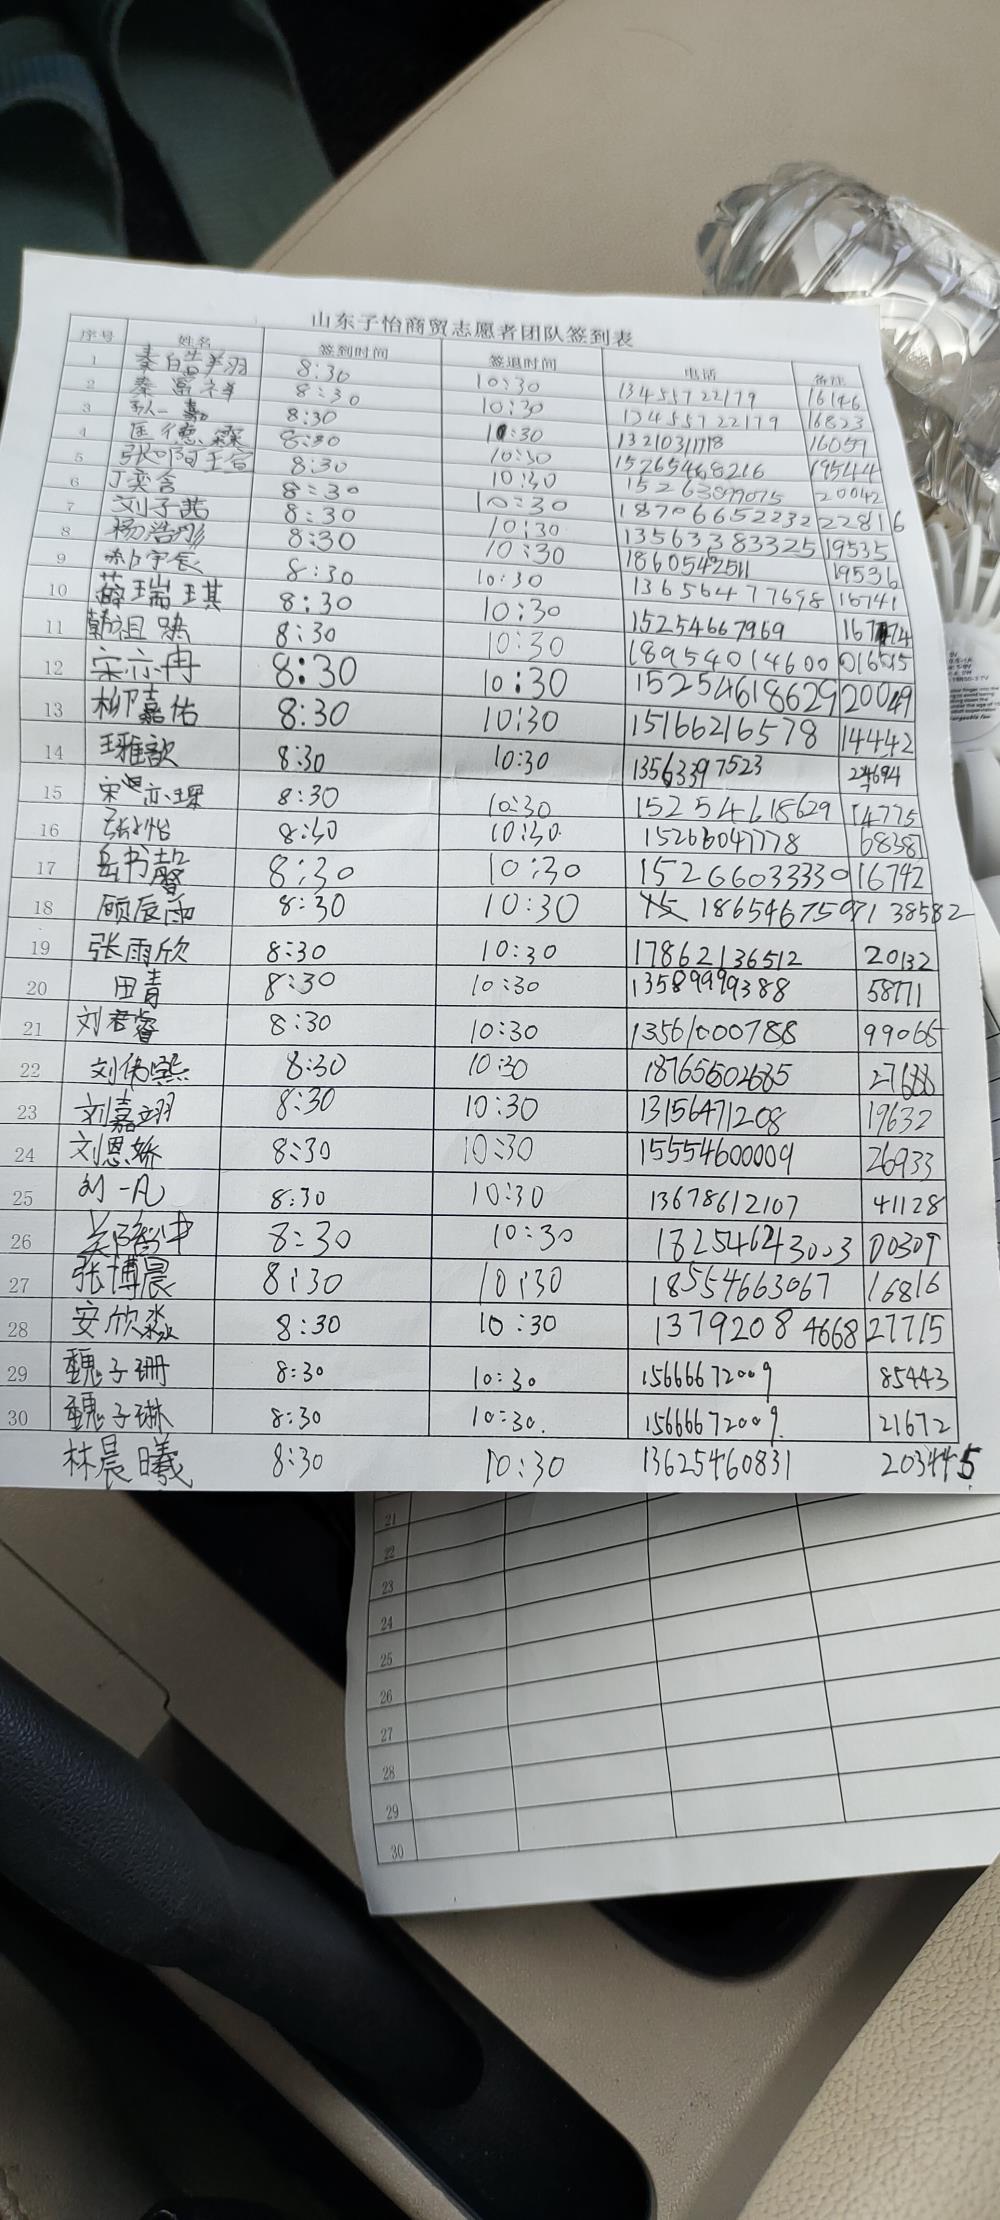 山东子怡商贸志愿者团队签到表
序号 姓名 签到时间 签退时间 电话 备注
1 8:30 10:30 13455722179 16146
2 秦富祥 8:30 10:30 13455722179 16823
3 嘉 8:30 10:30 13210311718 16059
4 匡德霖 8:30 10:30 15265468216 19544
5 8:30 10:30 15263899075 20042
6 丁奕含 8:30 10:30 18706652232 22816
7 刘子茜 8:30 10:30 13563383325 19535
8 杨浩彤 8:30 10:30 18605462511 19536
9 8:30 10:30 13656477698 16741
10 薛瑞琪 8:30 10:30 15254667969
11 韩祖 8:30 10:30 18954014600 016515
12 宋亦冉 8:30 10:30 15254618629 20049
13 柳嘉佑 8:30 10:30 15166216578 14442
14 王雅歆 8:30 10:30 13563397523 24694
15 宋亦琛 8:30 10:30 15254618629 14775
16 张怡 8:30 10:30 15266047778 68387
17 岳书馨 8:30 10:30 15266033330 16742
18 顾辰雨 8:30 10:30 18654675071 38582
19 张雨欣 8:30 10:30 17862136512 20132
20 田青 8:30 10:30 13589999388 58771
21 刘君睿 8:30 10:30 13561000788 99065
22 刘伟熙 8:30 10:30 18765602685 27688
23 刘嘉翊 8:30 10:30 13156471208 19632
24 刘恩娇 8:30 10:30 15554600009 26933
25 刘一凡 8:30 10:30 13678612107 41128
26 8:30 10:30 18254643003 00309
27 张博晨 8:30 10:30 18554663067 16816
28 安欣淼 8:30 10:30 13792084668 27715
29 魏子珊 8:30 10:30 15666672009 85443
30 魏子琳 8:30 10:30. 15666672009. 21672
林晨曦 8:30 10:30 13625460831 203445
21
22
23
24
25
26
27
28
29
30